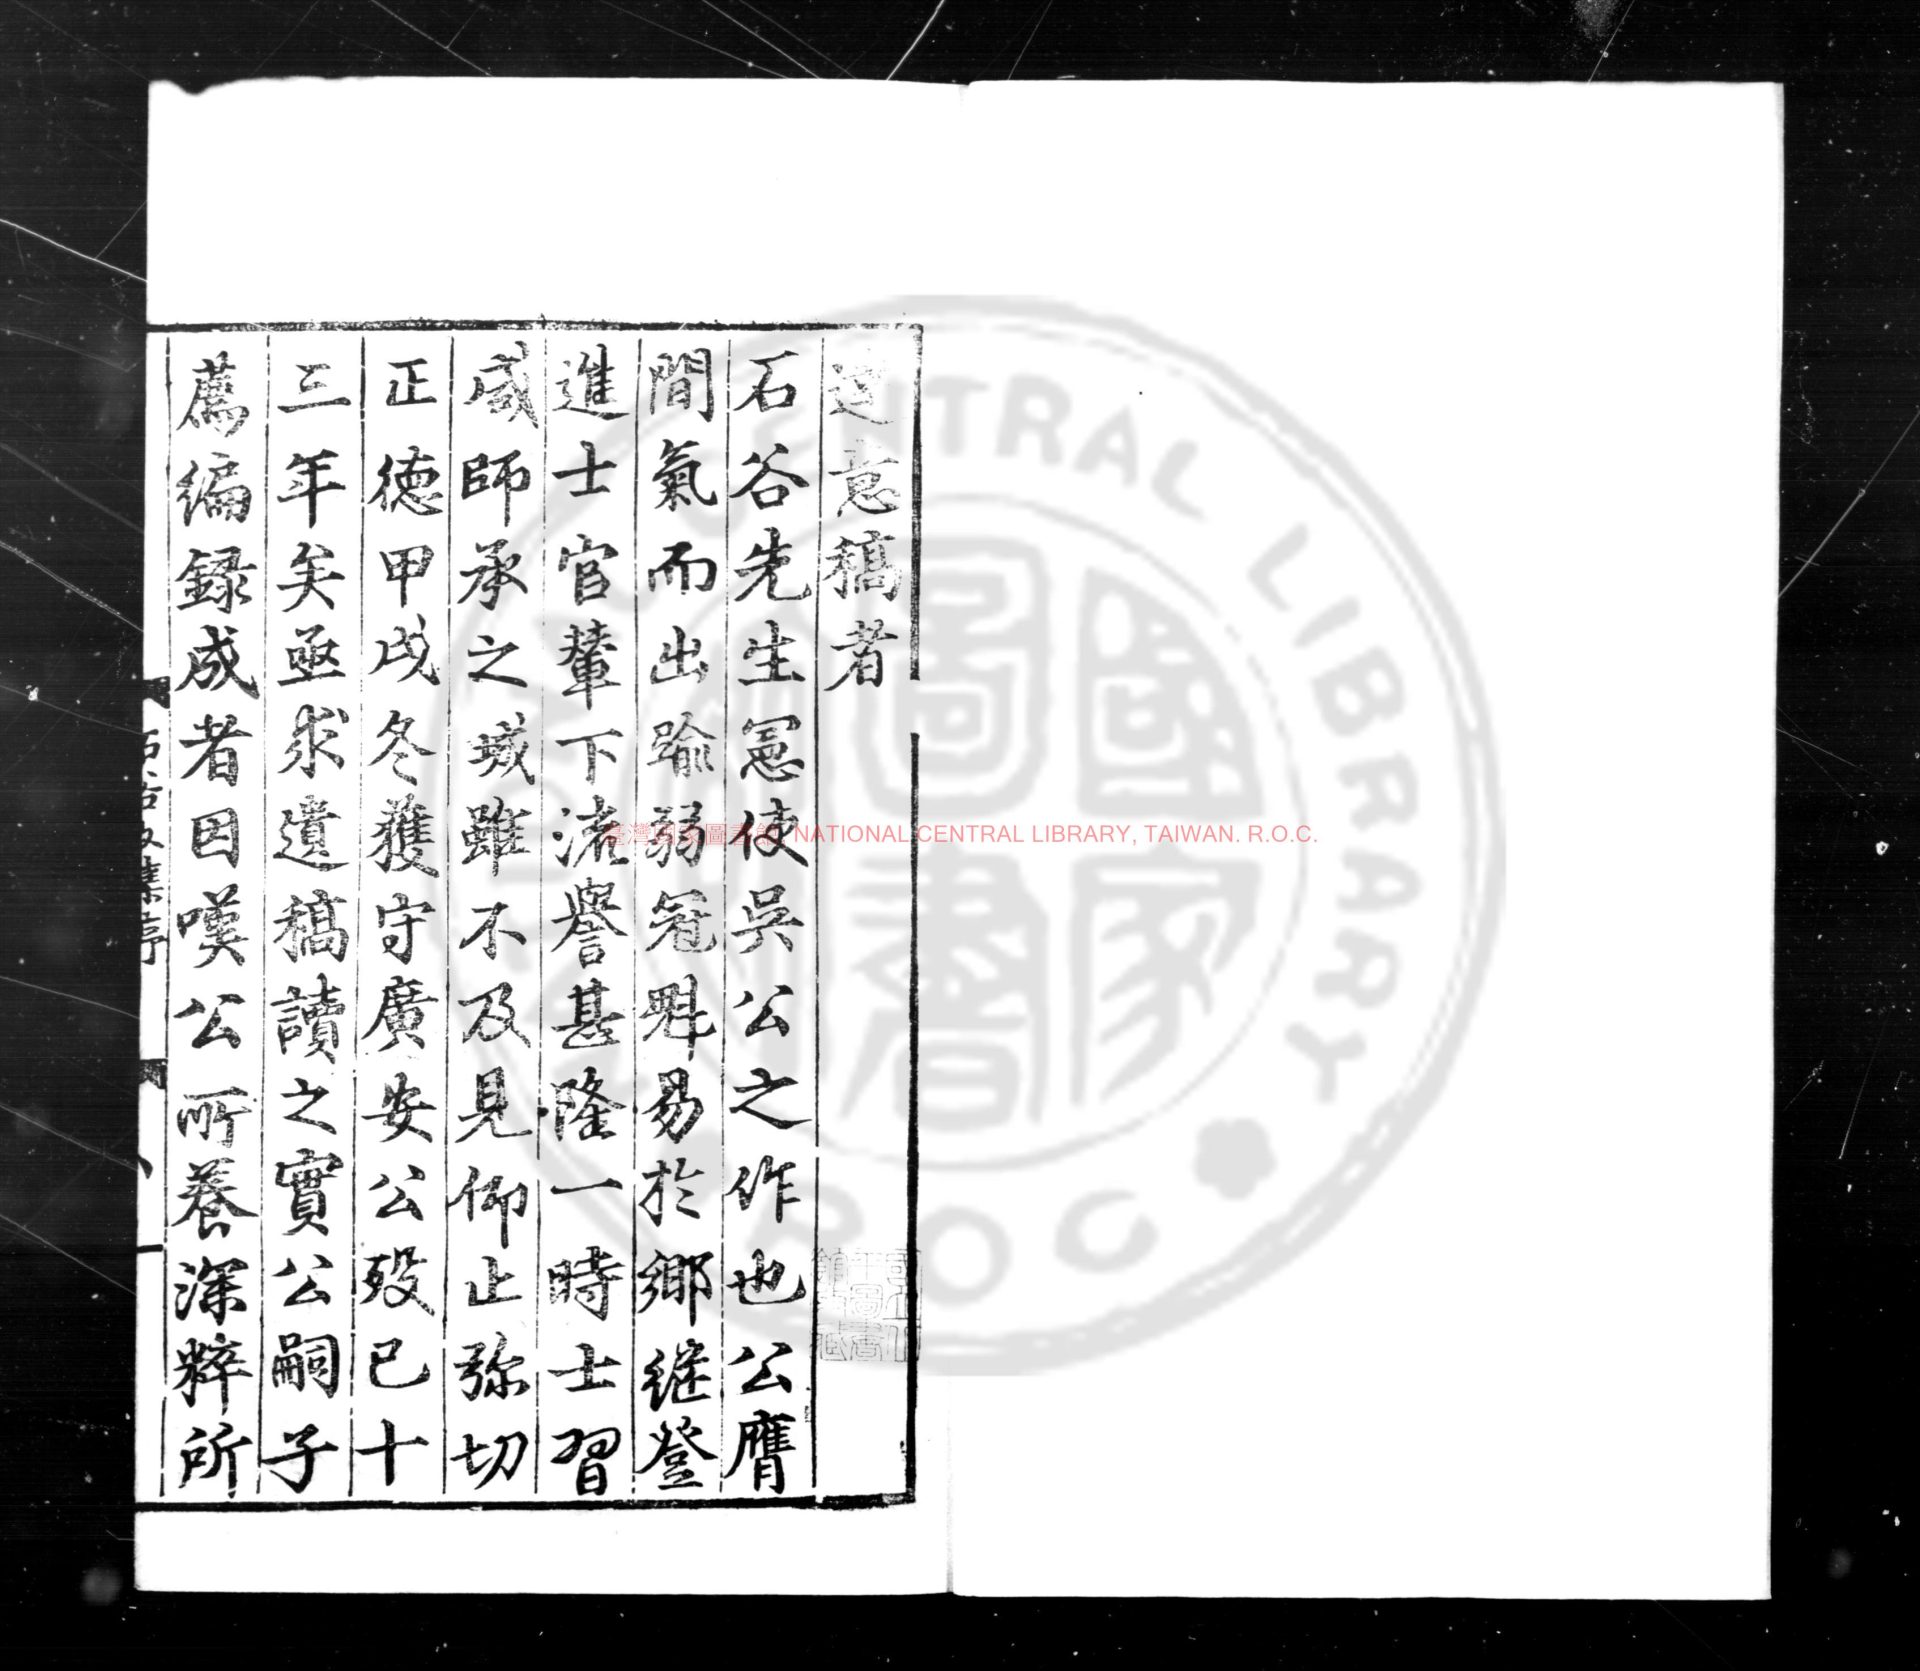 達意稿者
石谷先生憲使吳公之作也公膺
間氣而出踰弱冠魁易於鄉繼登
進士官輦下流譽甚隆一時士習
咸師承之珹雖不及見仰止弥切
正德甲戌冬獲守廣安公歿已十
三年矣亟求遺稿讀之實公嗣子
薦編録成者因嘆公所養深粹所
臺灣國家圖書館, NATIONAL CENTRAL LIBRARY, TAIWAN. R.O.C.
CENTRAL LIBRARY
R O C
國家圖書